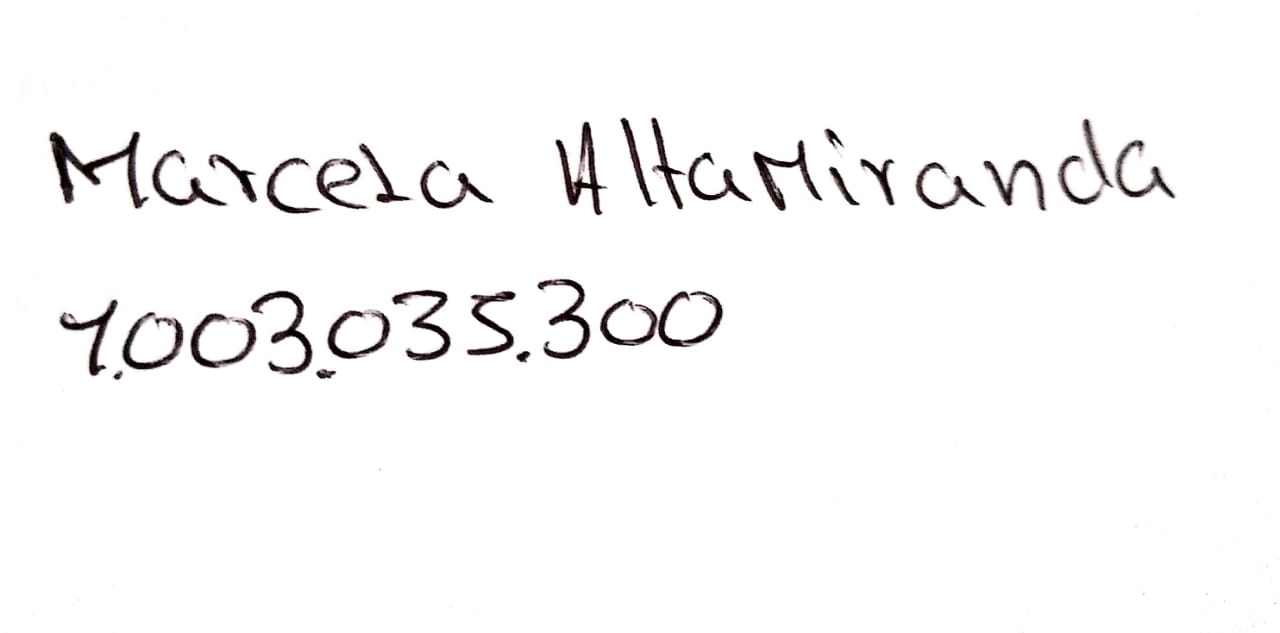 Marcela Altamiranda
1.003.035.300